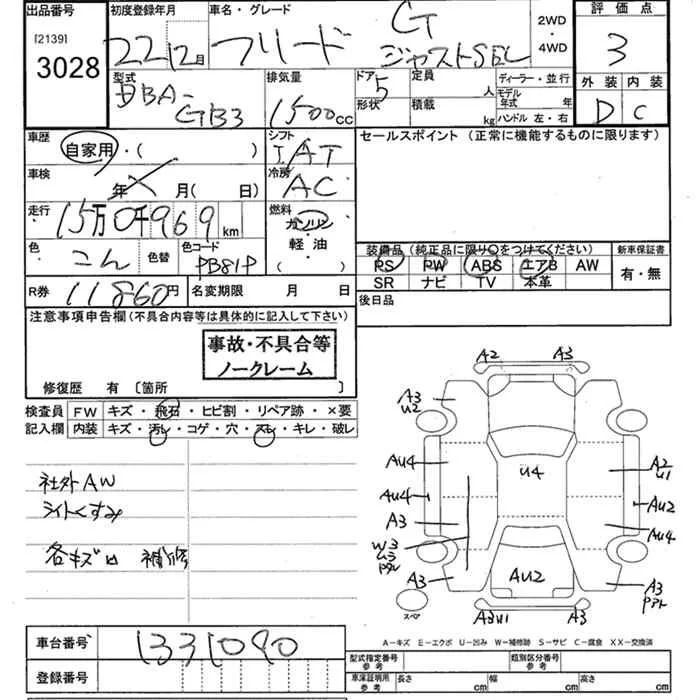 出品番号 初度登録年月 車名・グレード 評価点
[2139] 3028 22 12月 フリード G ジャストSEL 2WD・4WD 3
型式 排気量 ドア 定員 ディーラー・並行 外装 内装
DBA-GB3 1500cc 5 人 モデル年式 年 D C
形状 積載 kg ハンドル 左・右
車歴 自家用・( ) シフト IAT セールスポイント (正常に機能するものに限ります)
車検 年 月( 日) 冷房 AC
走行 15万0千969km 燃料 ガソリン・軽油・( )
色 こん 色替 色コード PB81P
装備品(純正品に限り○をつけてください) 新車保証書
PS PW ABS エアB AW 有・無
SR ナビ TV 本革
R券 11860円 名変期限 月 日 後日品
注意事項申告欄(不具合内容等は具体的に記入して下さい)
事故・不具合等
ノークレーム
修復歴 有 〔箇所 〕
検査員 FW キズ・飛石・ヒビ割・リペア跡・×要
記入欄 内装 キズ・汚レ・コゲ・穴・スレ・キレ・破レ
社外AW
ライトくすみ
各キズ 補修
A2 A3
A3 U2
AU4 U4 A2 U1
AU4 AU2
A3 AU4
W3 U3
A3 AU2 A3
スペア A3U1 A3
A-キズ E-エクボ U-凹み W-補修跡 S-サビ C-腐食 XX-交換済
車台番号 1331090
型式指定番号 参考 類別区分番号 参考
登録番号
車庫証明用 参考 長さ cm 幅 cm 高さ cm